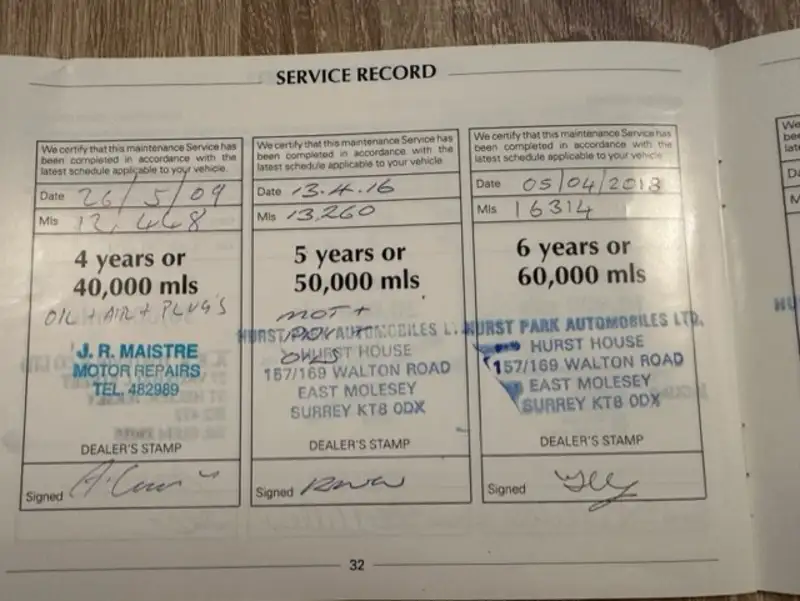 SERVICE RECORD
We certify that this maintenance Service has
been completed in accordance with the
latest schedule applicable to your vehicle.
Date 26/5/09
Mls 12,448
4 years or
40,000 mls
OIL + AIR + PLUG'S
J. R. MAISTRE
MOTOR REPAIRS
TEL. 482989
DEALER'S STAMP
Signed
We certify that this maintenance Service has
been completed in accordance with the
latest schedule applicable to your vehicle.
Date 13.4.16
Mls 13,260
5 years or
50,000 mls
MOT +
HURST AUTOMOBILES
HURST HOUSE
157/169 WALTON ROAD
EAST MOLESEY
SURREY KT8 0DX
DEALER'S STAMP
Signed
We certify that this maintenance Service has
been completed in accordance with the
latest schedule applicable to your vehicle.
Date 05/04/2018
Mls 16314
6 years or
60,000 mls
HURST PARK AUTOMOBILES LTD.
HURST HOUSE
157/169 WALTON ROAD
EAST MOLESEY
SURREY KT8 0DX
DEALER'S STAMP
Signed
32